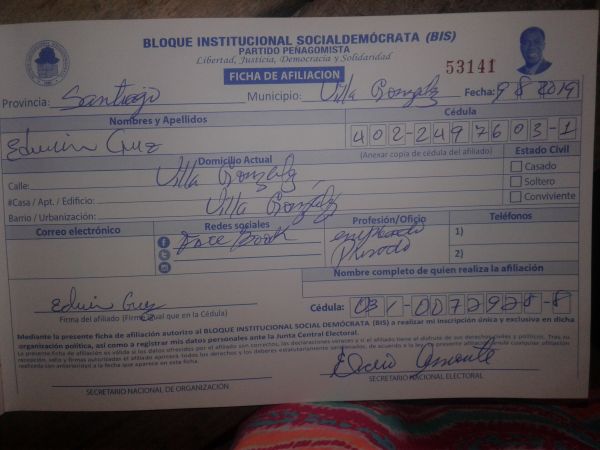 BLOQUE INSTITUCIONAL SOCIALDEMÓCRATA (BIS)
PARTIDO PEÑAGOMISTA
Libertad, Justicia, Democracia y Solidaridad
FICHA DE AFILIACION
53141
Provincia: Santiago Municipio: Villa Gonzalz Fecha: 9 8 2019
Nombres y Apellidos Cédula
Edwin Cruz 402-2497603-1
Domicilio Actual (Anexar copia de cédula del afiliado) Estado Civil
Calle: Villa Gonzalz
Casado
#Casa / Apt. / Edificio: Villa Gonzalz
Soltero
Barrio / Urbanización:
Conviviente
Correo electrónico Redes sociales Profesión/Oficio Teléfonos
Face Book empleado 1)
Privado 2)
Nombre completo de quien realiza la afiliación
Edwin Cruz
Firma del afiliado (Firme igual que en la Cédula) Cédula: 031-0072928-8
Mediante la presente ficha de afiliación autorizo al BLOQUE INSTITUCIONAL SOCIAL DEMÓCRATA (BIS) a realizar mi inscripción única y exclusiva en dicha
organización política, así como a registrar mis datos personales ante la Junta Central Electoral.
SECRETARIO NACIONAL DE ORGANIZACIÓN SECRETARIO NACIONAL ELECTORAL